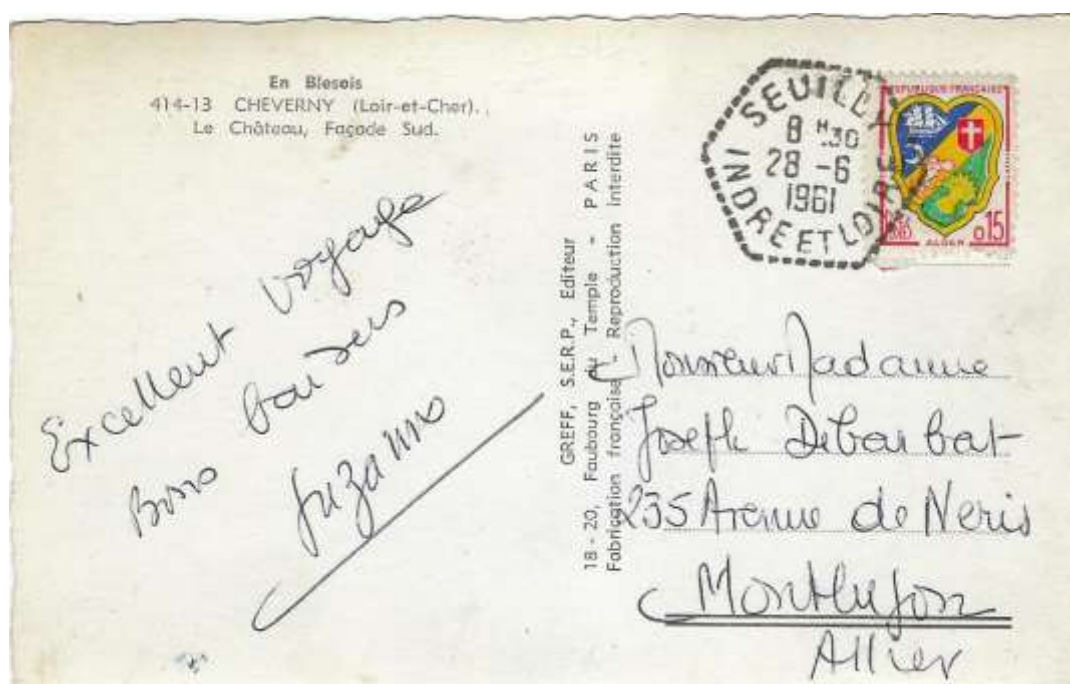 En Blesois
414-13 CHEVERNY (Loir-et-Cher).
Le Château, Façade Sud.
Excellent voyage
Bons baisers
Suzanne
GREFF, S.E.R.P., Editeur
18-20, Faubourg du Temple - PARIS
Fabrication française - Reproduction interdite
SEUILLY
8 H 30
28 -6
1961
INDRE ET LOIRE
REPUBLIQUE FRANÇAISE
0,15
ALGER
Monsieur Madame
Joseph Debarbat
235 Avenue de Neris
Montluçon
Allier